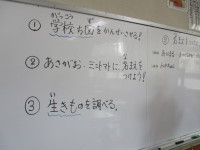 がっこう
① 学校ち図をかんせいさせる!
② あさがお・ミニトマトに、名まえを
つけよう!
③ 生きものを調べる。